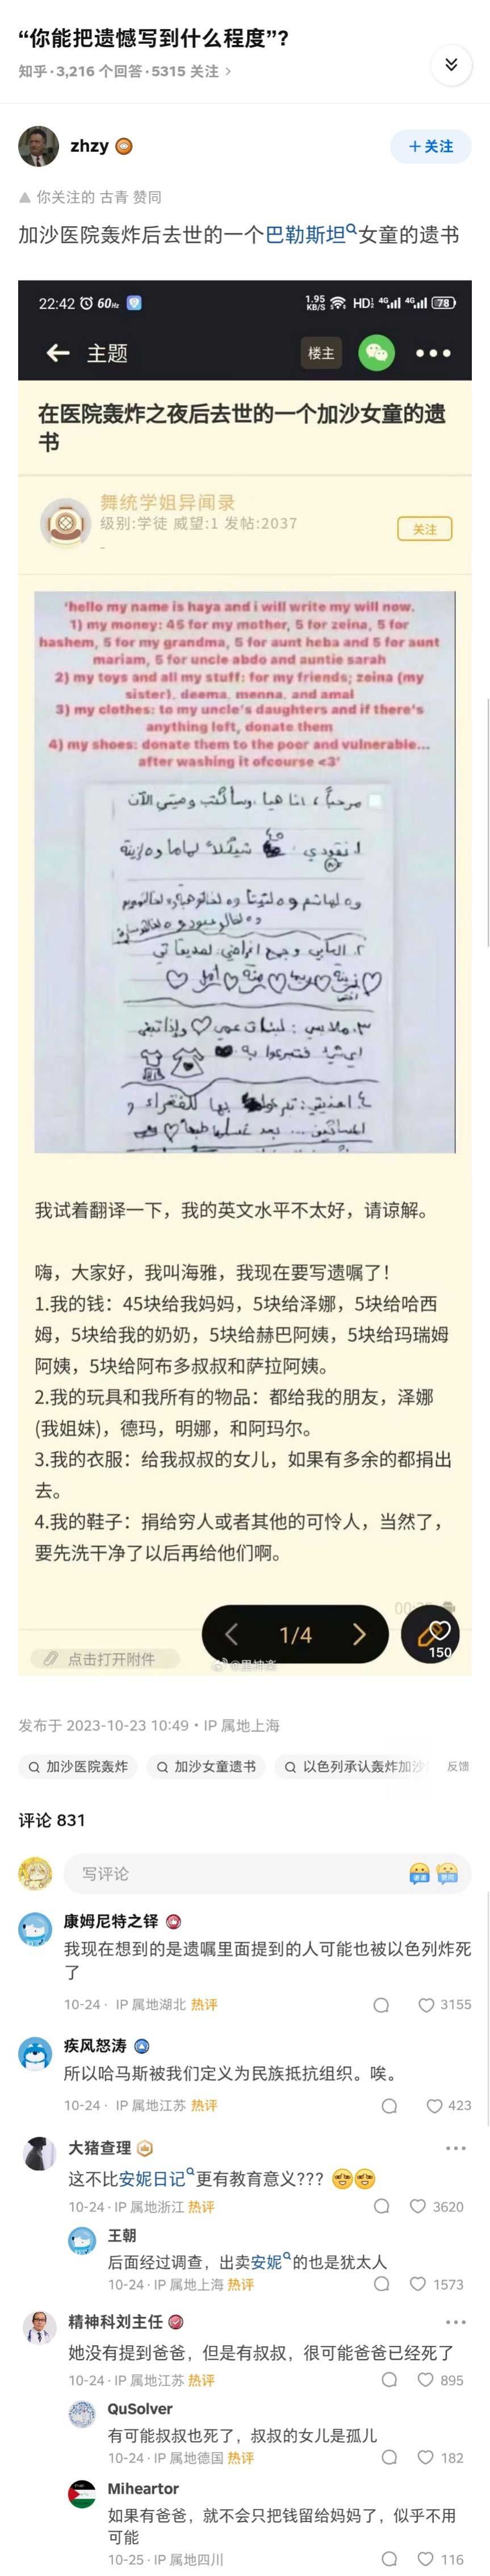 “你能把遗憾写到什么程度”?
知乎·3,216 个回答·5315 关注 >
zhzy
+关注
你关注的 古青 赞同
加沙医院轰炸后去世的一个巴勒斯坦女童的遗书
22:42 60Hz 1.95 KB/S HD 4G 4G 78
主题 楼主
在医院轰炸之夜后去世的一个加沙女童的遗
书
舞统学姐异闻录
级别:学徒 威望:1 发帖:2037
关注
-
'hello my name is haya and i will write my will now.
1) my money: 45 for my mother, 5 for zeina, 5 for
hashem, 5 for my grandma, 5 for aunt heba and 5 for aunt
mariam, 5 for uncle abdo and auntie sarah
2) my toys and all my stuff: for my friends; zeina (my
sister), deema, menna, and amal
3) my clothes: to my uncle's daughters and if there's
anything left, donate them
4) my shoes: donate them to the poor and vulnerable...
after washing it ofcourse <3'
مرحباً، انا هيا، وسأكتب وصيتي الآن
نقودي ٤٥ لماما و٥ لزينة
و٥ لهاشم و٥ لتيتا و٥
٢. وجميع اغراضي: لصديقاتي
زينة
٣. ملابسي: لبنات عمي وإذا تبقى
اي شيء فتبرعوا به
٤. احذيتي: بها للفقراء و
بعد غسلها طبعاً
我试着翻译一下，我的英文水平不太好，请谅解。
嗨，大家好，我叫海雅，我现在要写遗嘱了！
1.我的钱：45块给我妈妈，5块给泽娜，5块给哈西
姆，5块给我的奶奶，5块给赫巴阿姨，5块给玛瑞姆
阿姨，5块给阿布多叔叔和萨拉阿姨。
2.我的玩具和我所有的物品：都给我的朋友，泽娜
(我姐妹)，德玛，明娜，和阿玛尔。
3.我的衣服：给我叔叔的女儿，如果有多余的都捐出
去。
4.我的鞋子：捐给穷人或者其他的可怜人，当然了，
要先洗干净了以后再给他们啊。
1/4
150
点击打开附件
发布于 2023-10-23 10:49·IP 属地上海
加沙医院轰炸 加沙女童遗书 以色列承认轰炸加沙 反馈
评论 831
写评论
康姆尼特之铎
我现在想到的是遗嘱里面提到的人可能也被以色列炸死
了
10-24 · IP 属地湖北 热评 3155
疾风怒涛
所以哈马斯被我们定义为民族抵抗组织。唉。
10-24 · IP 属地江苏 热评 423
大猪查理
这不比安妮日记更有教育意义???
10-24 · IP 属地浙江 热评 3620
王朝
后面经过调查，出卖安妮的也是犹太人
10-24 · IP 属地上海 热评 1573
精神科刘主任
她没有提到爸爸，但是有叔叔，很可能爸爸已经死了
10-24 · IP 属地江苏 热评 895
QuSolver
有可能叔叔也死了，叔叔的女儿是孤儿
10-24 · IP 属地德国 热评 182
Miheartor
如果有爸爸，就不会只把钱留给妈妈了，似乎不用
可能
10-25 · IP 属地四川 116